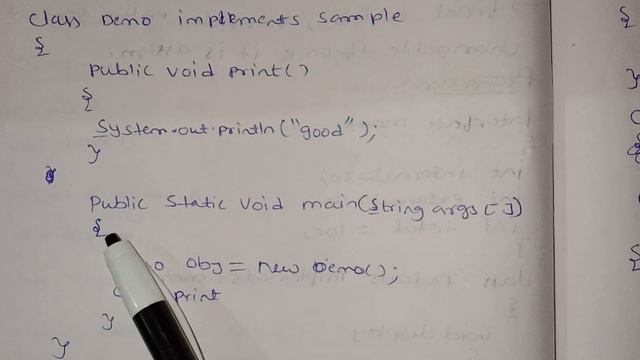 class Demo implements sample
{
public void print()
{
System.out.println("good");
}
public static void main(String args[])
{
obj = new Demo();
print
}
}
{
}
{
{